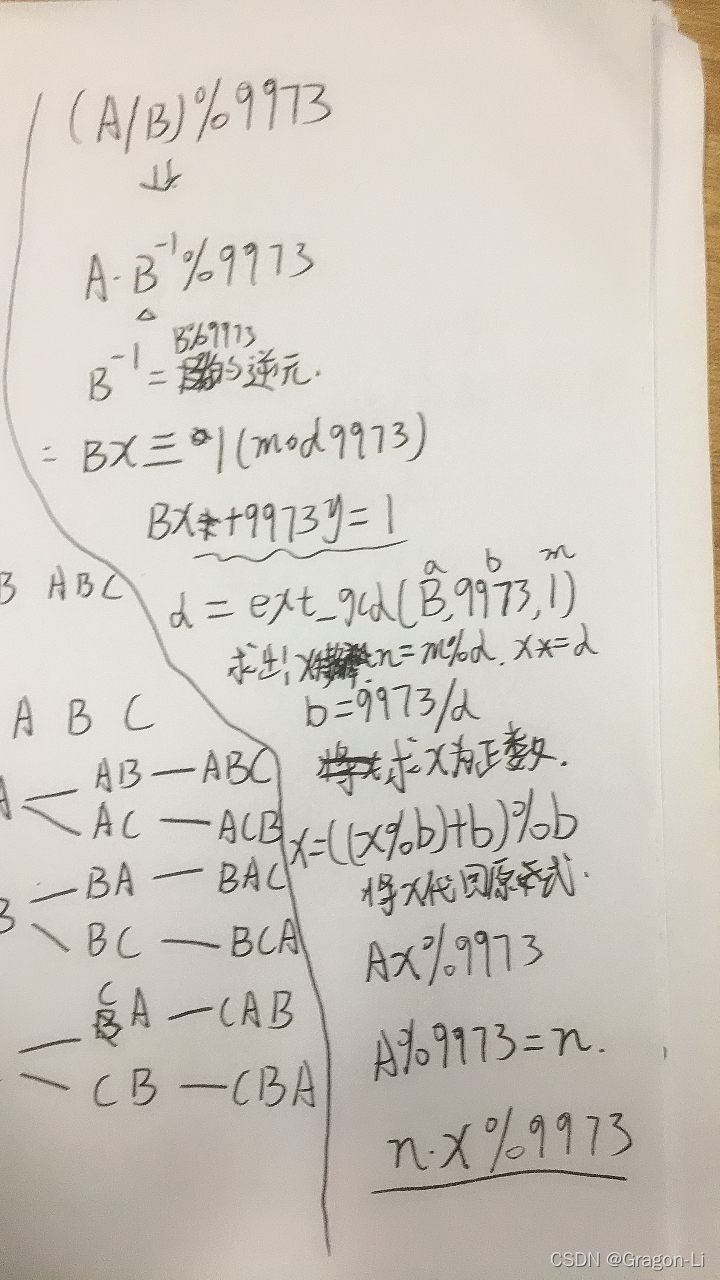 (A/B)%9973
⇓
A·B⁻¹%9973
△
B%9973
B⁻¹ = 的逆元.
= Bx ≡ 1(mod9973)
Bx+9973y=1
a b m
d = ext_gcd(B,9973,1)
求出 x n=m%d. x*=d
b=9973/d
求x为正数.
x=((x%b)+b)%b
将x代回原式.
Ax%9973
A%9973=n.
n·x%9973
B ABC
A B C
A AB — ABC
AC — ACB
B BA — BAC
BC — BCA
CA — CAB
CB — CBA
CSDN @Gragon-Li